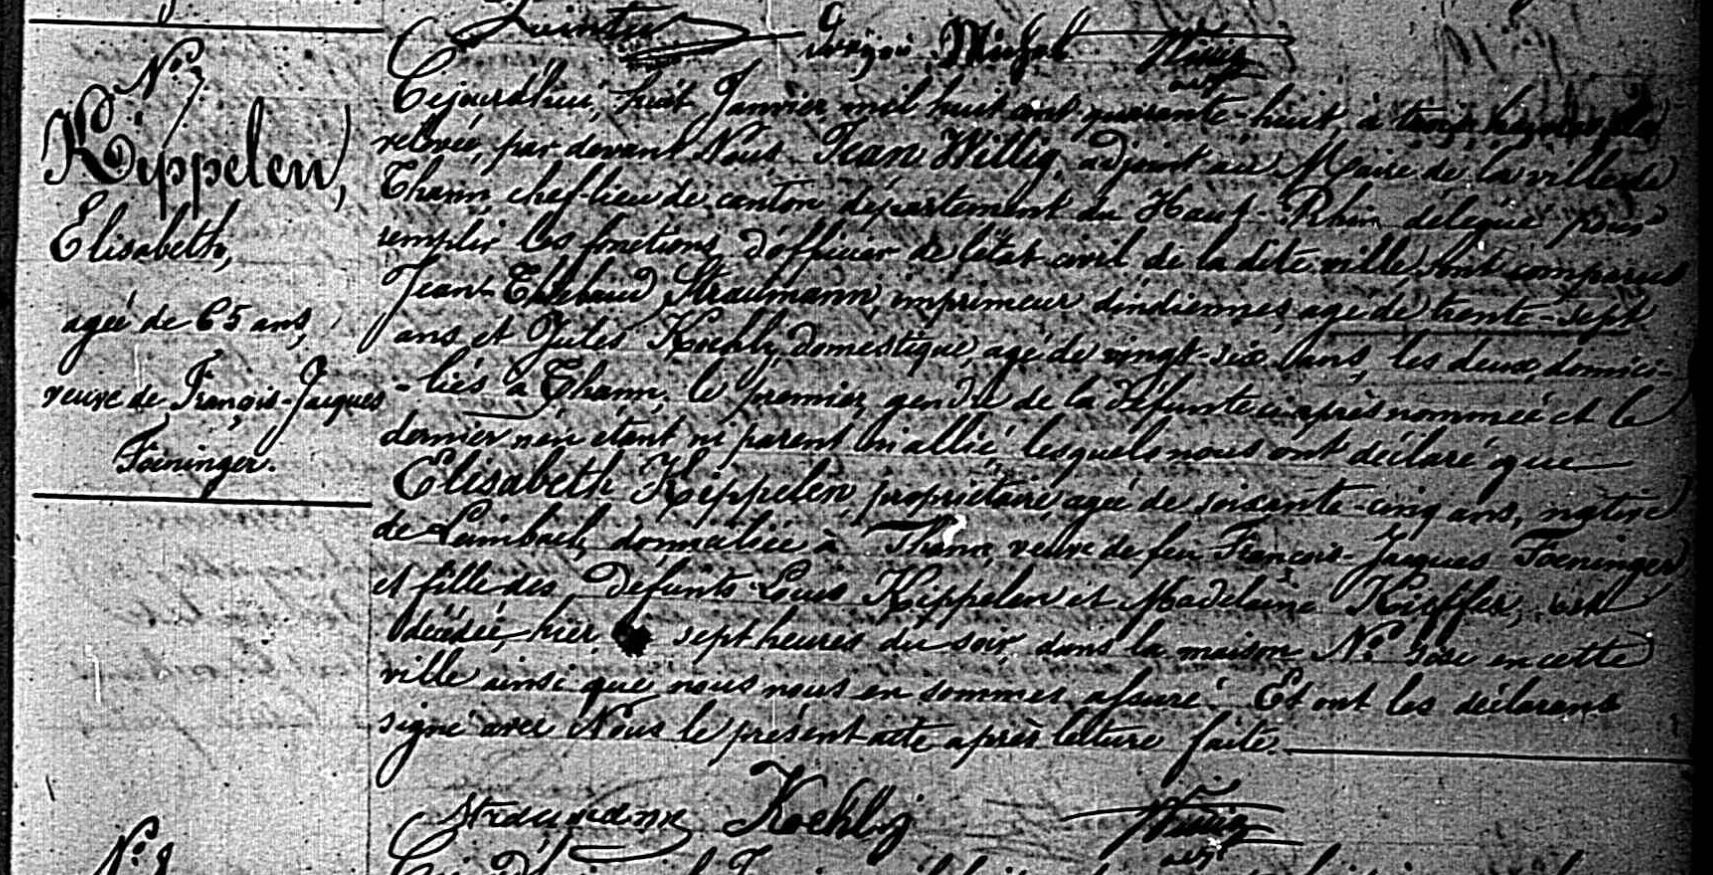 N.º 7
Kippelen,
Elisabeth,
agée de 65 ans,
veuve de François-Jacques
Foeninger.
Cejourd'hui, huit Janvier mil huit cent quarante-huit, à trois heures de
relevée, par devant Nous Jean Willig, adjoint au Maire de la ville de
Thann, chef-lieu de canton, département du Haut-Rhin, délégué pour
remplir les fonctions d'officier de l'état civil de la dite ville, sont comparus
Jean-Thiébaud Straumann, imprimeur d'indiennes, agé de trente-sept
ans, et Jules Koehly, domestique, agé de vingt-six ans, les deux domici-
-liés à Thann, le premier gendre de la défunte ci-après nommée et le
dernier n'en étant ni parent ni allié, lesquels nous ont déclaré que
Elisabeth Kippelen, propriétaire, agée de soixante-cinq ans, native
de Leimbach, domiciliée à Thann, veuve de feu François-Jacques Foeninger
et fille des défunts Louis Kippelen et Madelaine Kieffer, est
décédée, hier, sept heures du soir, dans la maison N.º en cette
ville ainsi que nous nous en sommes assuré. Et ont les déclarans
signé avec Nous le présent acte après lecture faite.
Straumann Koehly Willig
adj
N.º 8